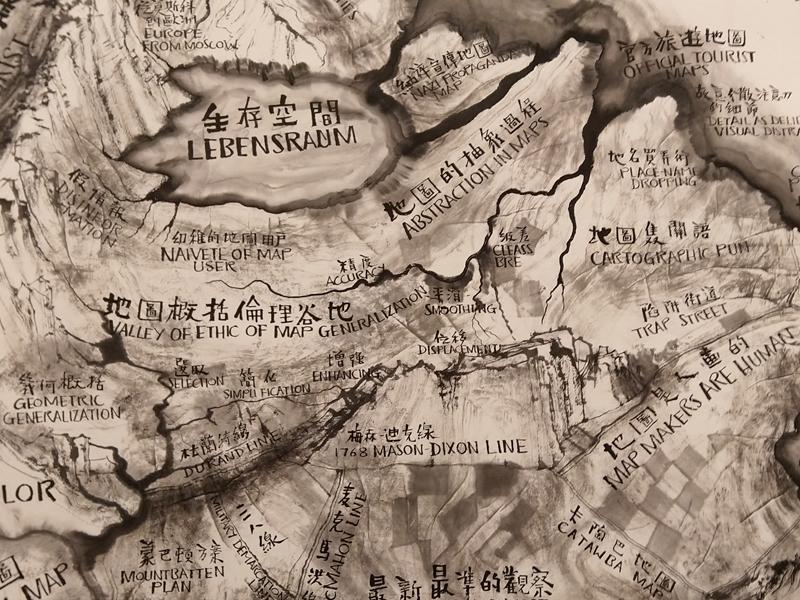 從莫斯科
到歐洲
EUROPE
FROM MOSCOW
納粹宣傳地圖
NAZI PROPAGANDA
MAP
官方旅遊地圖
OFFICIAL TOURIST
MAPS
生存空間
LEBENSRAUM
的細節
DETAIL AS DELI
VISUAL DISTRA
地圖的抽象過程
ABSTRACTION IN MAPS
地名賣弄術
PLACE-NAME
DROPPING
假情報
DISINFOR
MATION
幼稚的地圖用戶
NAIVETE OF MAP
USER
級差
地圖雙關語
CARTOGRAPHIC PUN
精度
ACCURACY
地圖概括倫理谷地
VALLEY OF ETHIC OF MAP GENERALIZATION
平滑
SMOOTHING
陷阱街道
TRAP STREET
位移
DISPLACEMENT
選取
SELECTION
簡化
SIMPLIFICATION
增強
ENHANCING
幾何概括
GEOMETRIC
GENERALIZATION
地圖是人畫的
MAP MAKERS ARE HUMAN
杜蘭等線
DURAND LINE
梅森-迪克線
1768 MASON-DIXON LINE
LOR
三八線
MILITARY DEMARCATION
LINE
麥克馬洪線
CMAHON LINE
卡陶巴地圖
CATAWBA MAP
蒙巴頓方案
MOUNTBATTEN
PLAN
圖
MAP
最新最準的觀察